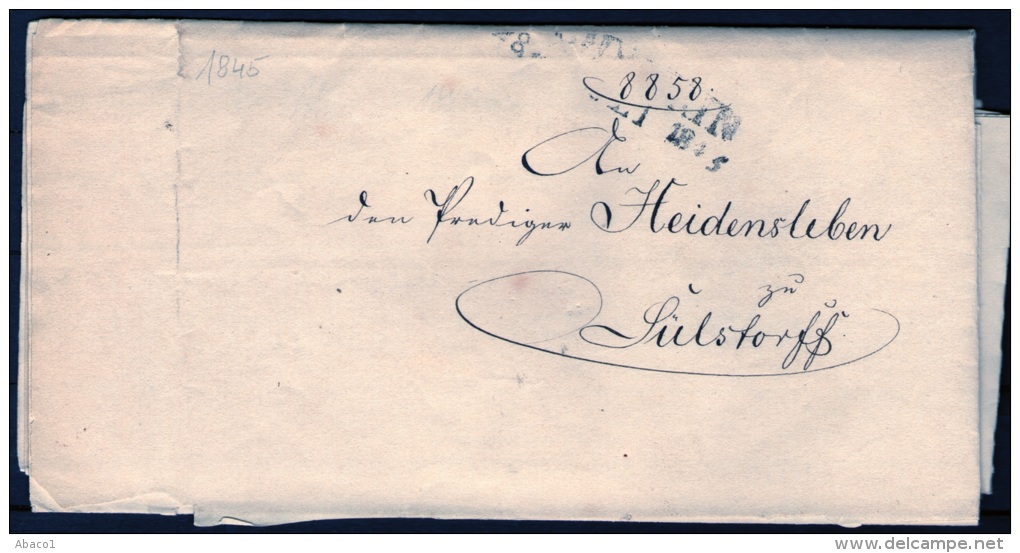 1845
8858.
1845
An
den Prediger Heidensleben
zu
Sülstorff.
Abaco1
www.delcampe.net